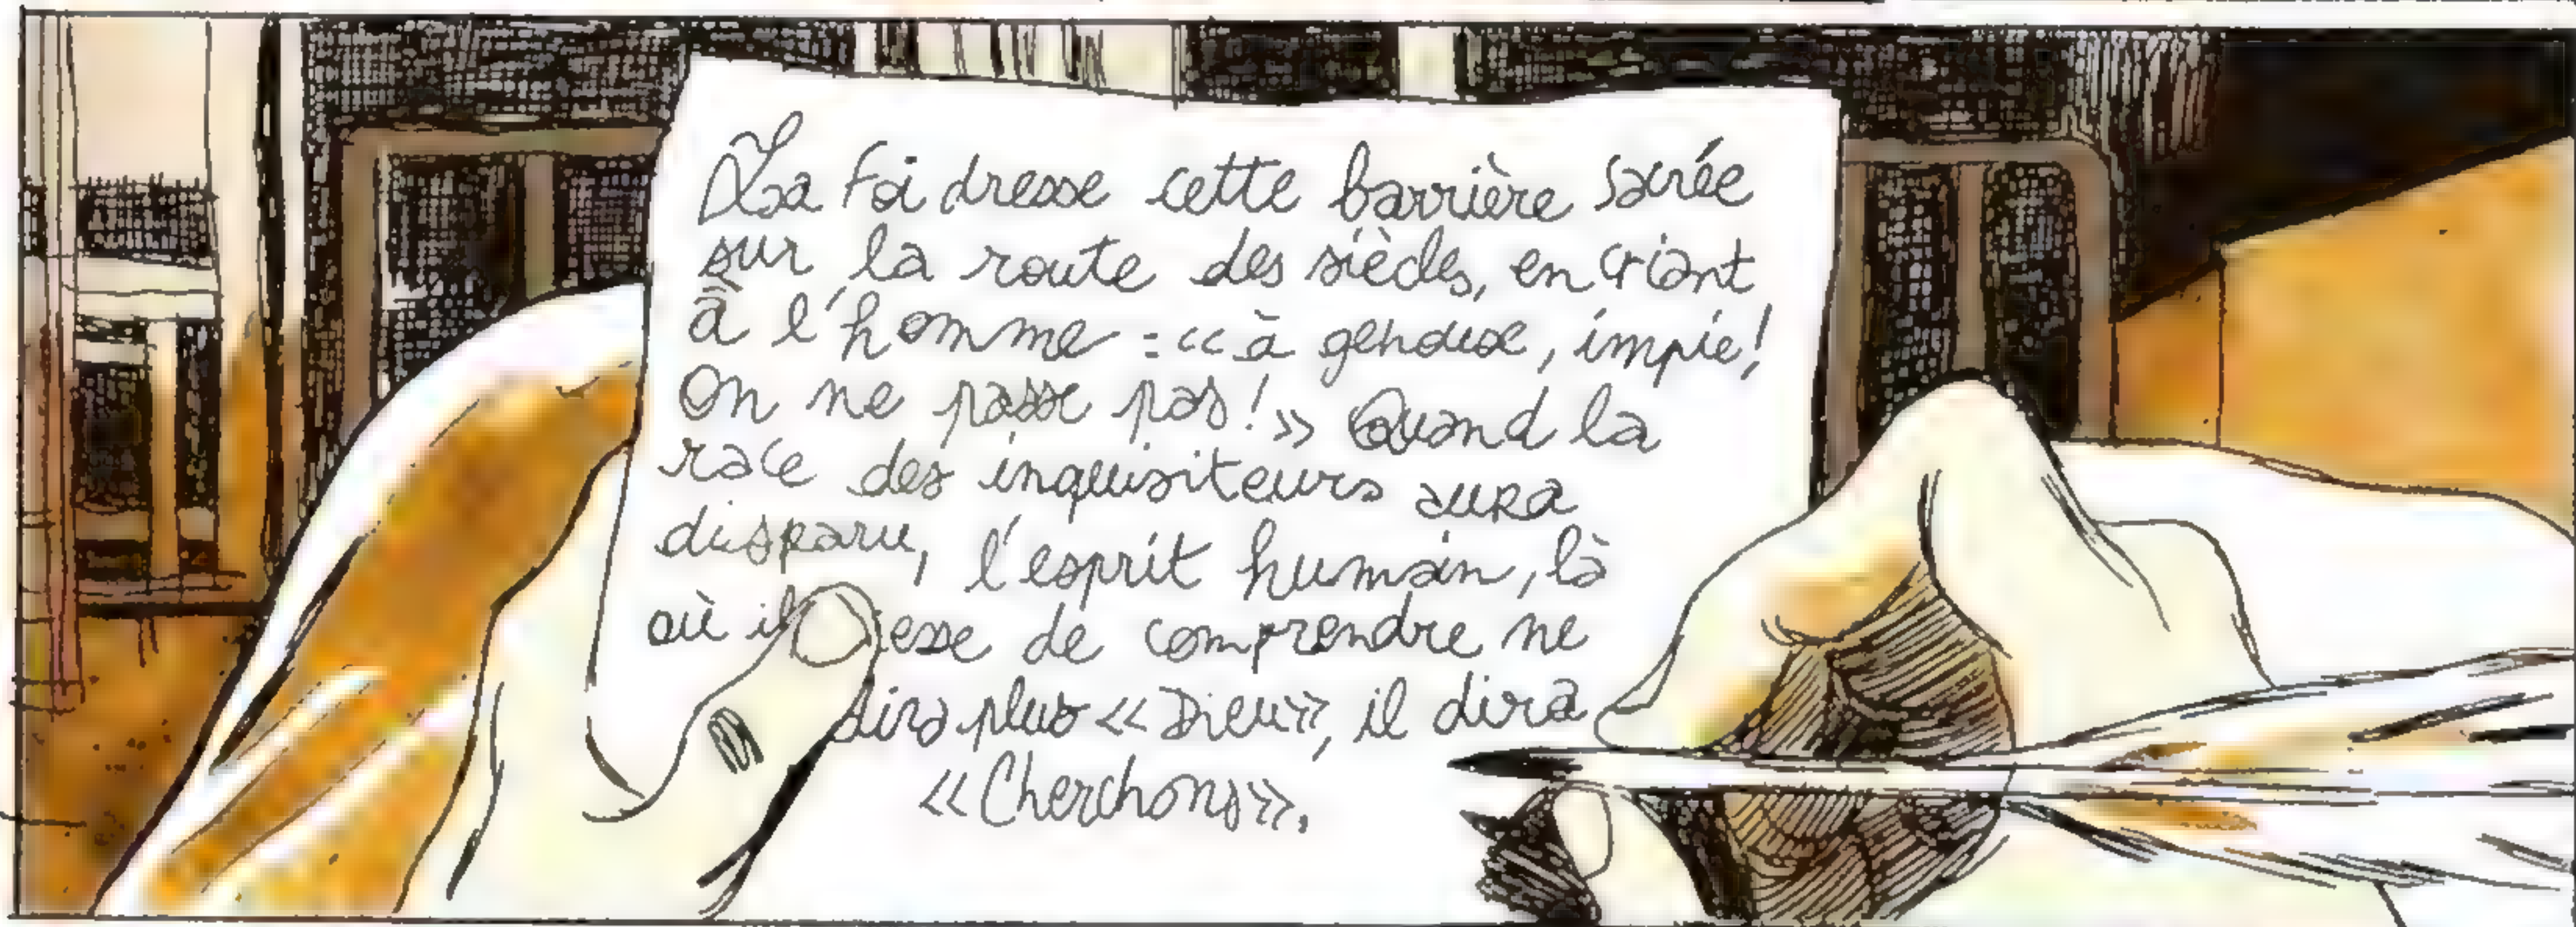 La Foi dresse cette barrière sacrée
sur la route des siècles, en criant
à l'homme : «à genoux, impie!
On ne passe pas!» Quand la
race des inquisiteurs aura
disparu, l'esprit humain, là
où il cesse de comprendre ne
dira plus «Dieu», il dira
«Cherchons».